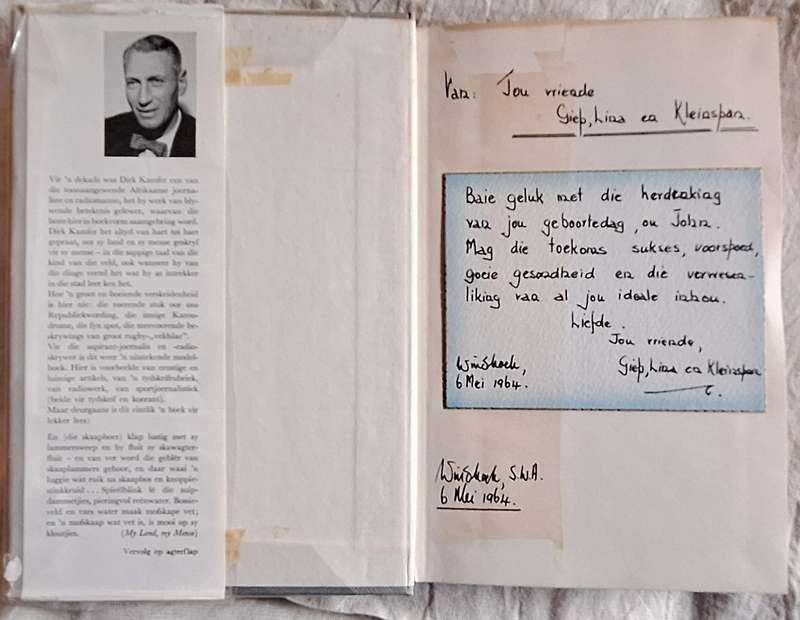 Vir 'n dekade was Dirk Kamfer een van
die toonaangewende Afrikaanse joerna-
liste en radiomanne, het hy werk van bly-
wende betekenis gelewer, waarvan die
beste hier in boekvorm saamgebring word.
Dirk Kamfer het altyd van hart tot hart
gepraat, oor sy land en sy mense geskryf
vir sy mense – in die sappige taal van die
kind van die veld, ook wanneer hy van
die dinge vertel het wat hy as intrekker
in die stad leer ken het.
Hoe 'n groot en boeiende verskeidenheid
is hier nie: die roerende stuk oor ons
Republiekwording, die innige Karoo-
drome, die fyn spot, die meevoerende be-
skrywings van groot rugby-„veldslae".
Vir die aspirant-joernalis en -radio-
skrywer is dit weer 'n uitstekende model-
boek. Hier is voorbeelde van ernstige en
luimige artikels, van 'n tydskrifrubriek,
van radiowerk, van sportjoernalistiek
(beide vir tydskrif en koerant).
Maar deurgaans is dit eintlik 'n boek vir
lekker lees:
En (die skaapboer) klap hanig met sy
lammersweep en hy fluit sy skaapwagter-
fluit – en van ver word die geblêr van
skaaplammers gehoor, en daar waai 'n
luggie wat ruik na skaapbos en knoppie-
stinkkruid... Spieëlblink lê die suip-
dammetjies, pieringvol reënwater. Bossie-
veld en vars water maak mofskape vet;
en 'n mofskaap wat vet is, is mooi op sy
kloutjies. (My Land, my Mense)
Vervolg op agterflap
Van: Jou vriende
Giep, Lina en Kleinspan.
Baie geluk met die herdenking
van jou geboortedag, ou John.
Mag die toekoms sukses, voorspoed,
goeie gesondheid en die verwesen-
liking van al jou ideale inhou.
Liefde.
Jou vriende,
Giep, Lina en Kleinspan
6 Mei 1964.
S.W.A.
6 Mei 1964.